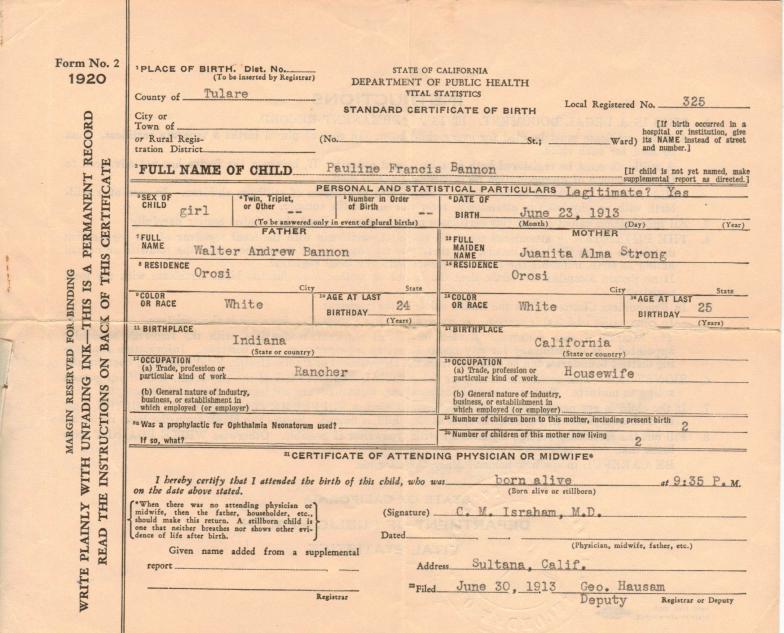 Form No. 2
1920
MARGIN RESERVED FOR BINDING
WRITE PLAINLY WITH UNFADING INK—THIS IS A PERMANENT RECORD
READ THE INSTRUCTIONS ON BACK OF THIS CERTIFICATE
¹PLACE OF BIRTH. Dist. No.
(To be inserted by Registrar)
County of Tulare
City or
Town of
or Rural Regis-
tration District
STATE OF CALIFORNIA
DEPARTMENT OF PUBLIC HEALTH
VITAL STATISTICS
STANDARD CERTIFICATE OF BIRTH
Local Registered No. 325
(No. St.; Ward)
[If birth occurred in a
hospital or institution, give
its NAME instead of street
and number.]
²FULL NAME OF CHILD Pauline Francis Bannon
[If child is not yet named, make
supplemental report as directed.]
PERSONAL AND STATISTICAL PARTICULARS Legitimate? Yes
³SEX OF
CHILD girl
⁴Twin, Triplet,
or Other --
⁵Number in Order
of Birth --
(To be answered only in event of plural births)
⁶DATE OF
BIRTH June 23, 1913
(Month) (Day) (Year)
FATHER
⁷FULL
NAME Walter Andrew Bannon
⁸RESIDENCE
Orosi
City State
⁹COLOR
OR RACE White
¹⁰AGE AT LAST
BIRTHDAY 24
(Years)
¹¹BIRTHPLACE
Indiana
(State or country)
¹²OCCUPATION
(a) Trade, profession or
particular kind of work Rancher
(b) General nature of industry,
business, or establishment in
which employed (or employer)
MOTHER
¹³FULL
MAIDEN
NAME Juanita Alma Strong
¹⁴RESIDENCE
Orosi
City State
¹⁵COLOR
OR RACE White
¹⁶AGE AT LAST
BIRTHDAY 25
(Years)
¹⁷BIRTHPLACE
California
(State or country)
¹⁸OCCUPATION
(a) Trade, profession or
particular kind of work Housewife
(b) General nature of industry,
business, or establishment in
which employed (or employer)
Was a prophylactic for Ophthalmia Neonatorum used?
If so, what?
Number of children born to this mother, including present birth 2
Number of children of this mother now living 2
²¹CERTIFICATE OF ATTENDING PHYSICIAN OR MIDWIFE*
I hereby certify that I attended the birth of this child, who was born alive at 9:35 P. M.
on the date above stated.
(Born alive or stillborn)
*When there was no attending physician or
midwife, then the father, householder, etc.,
should make this return. A stillborn child is
one that neither breathes nor shows other evi-
dence of life after birth.
Given name added from a supplemental
report
Registrar
(Signature) C. M. Israham, M.D.
Dated
(Physician, midwife, father, etc.)
Address Sultana, Calif.
²²Filed June 30, 1913 Geo. Hausam
Deputy Registrar or Deputy